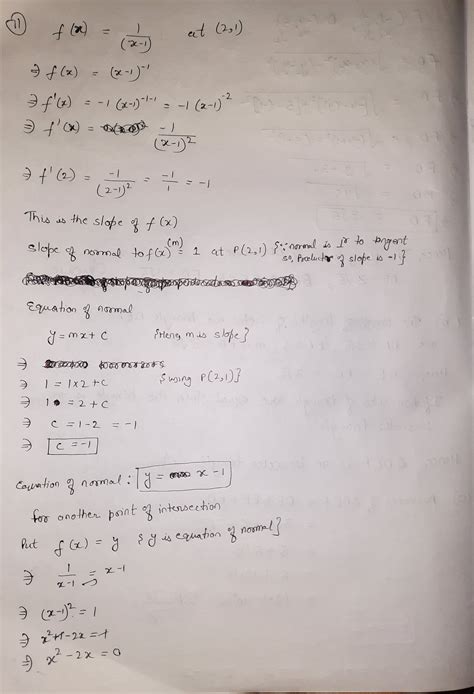 11) f(x) = 1/(x-1) at (2,1)
⇒ f(x) = (x-1)⁻¹
⇒ f'(x) = -1 (x-1)⁻¹⁻¹ = -1 (x-1)⁻²
⇒ f'(x) = -1/(x-1)²
⇒ f'(2) = -1/(2-1)² = -1/1 = -1
This is the slope of f(x)
slope of normal to f(x) (m) = 1 at P(2,1) {∵ normal is ⊥r to tangent
so, Product of slope is -1}
Equation of normal
y = mx + c {Here, m is slope}
⇒
⇒ 1 = 1x2 + c {using P(2,1)}
⇒ 1 = 2 + c
⇒ c = 1-2 = -1
⇒ c = -1
Equation of normal : y = x -1
for another point of intersection
Put f(x) = y {y is equation of normal}
⇒ 1/(x-1) = x-1
⇒ (x-1)² = 1
⇒ x²+1-2x = 1
⇒ x² - 2x = 0